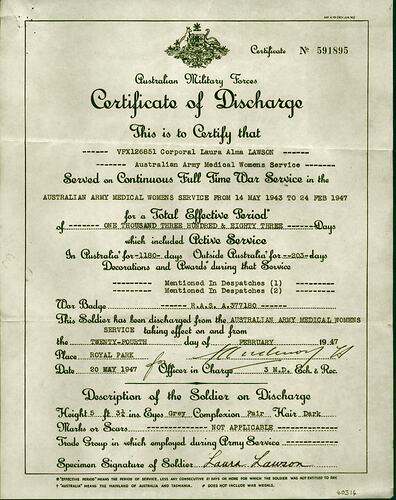 Certificate No 591895
Australian Military Forces
Certificate of Discharge
This is to Certify that
VFX126851 Corporal Laura Alma LAWSON
Australian Army Medical Womens Service
Served on Continuous Full Time War Service in the
AUSTRALIAN ARMY MEDICAL WOMENS SERVICE FROM 14 MAY 1943 TO 24 FEB 1947
for a Total Effective Period*
of ------ ONE THOUSAND THREE HUNDRED & EIGHTY THREE ------ Days
which included Active Service
In Australia† for -1180- days Outside Australia† for --203- days
Decorations and Awards# during that Service
Mentioned In Despatches (1)
Mentioned In Despatches (2)
War Badge ------ R.A.S. A.377180 ------
This Soldier has been discharged from the AUSTRALIAN ARMY MEDICAL WOMENS
SERVICE taking effect on and from
the TWENTY-FOURTH day of FEBRUARY 1947
Place ROYAL PARK
Date 20 MAY 1947 Officer in Charge 3 M.D. Ech. & Rec.
Description of the Soldier on Discharge
Height 5 ft. 3½ ins Eyes Grey Complexion Fair Hair Dark
Marks or Scars ------ NOT APPLICABLE ------
Trade Group in which employed during Army Service ------
Specimen Signature of Soldier Laura Lawson
* "EFFECTIVE PERIOD" MEANS THE PERIOD OF SERVICE, LESS ANY CONSECUTIVE 21 DAYS OR MORE FOR WHICH THE SOLDIER WAS NOT ENTITLED TO PAY.
† "AUSTRALIA" MEANS THE MAINLAND OF AUSTRALIA AND TASMANIA. # DOES NOT INCLUDE WAR MEDALS.